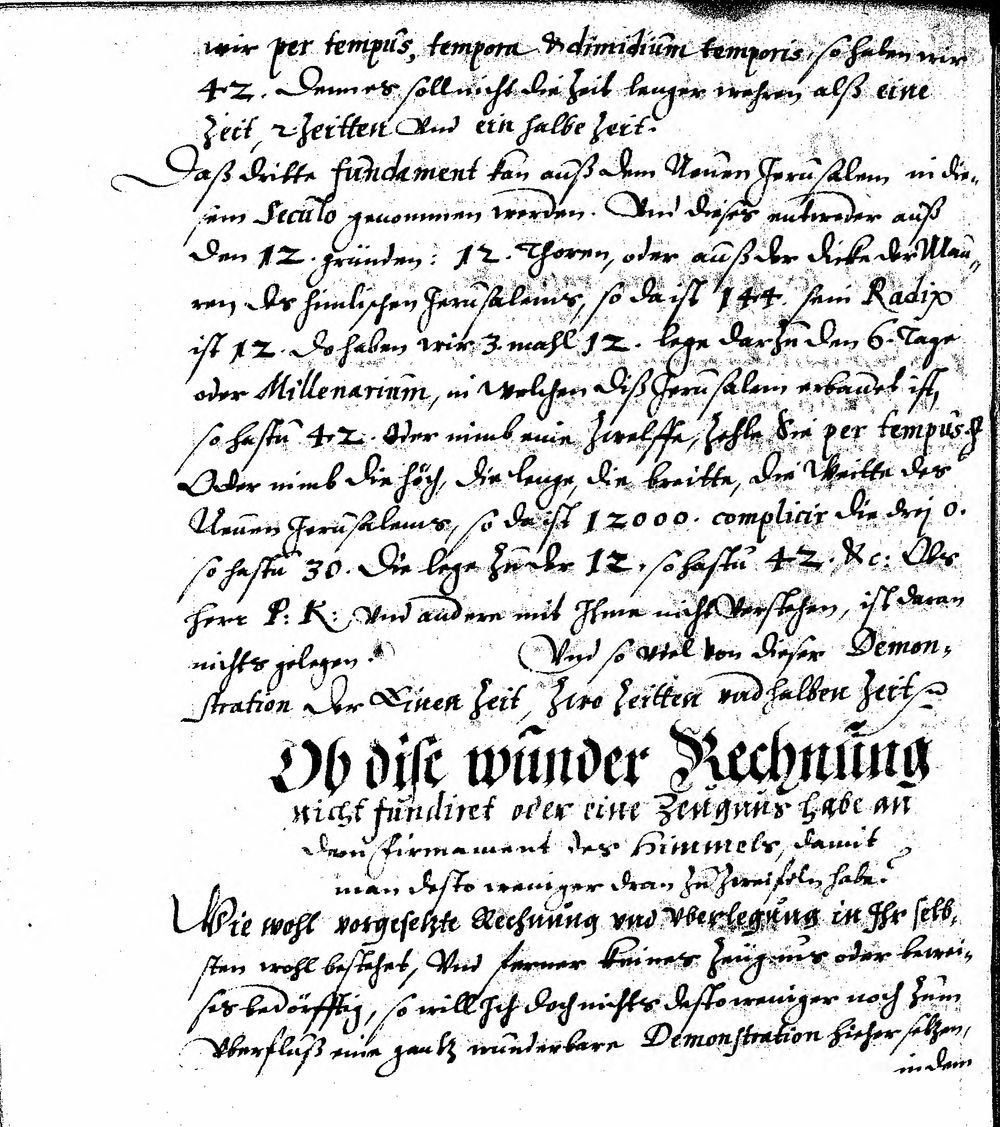 wir per tempus, tempora & dimidium temporis, so haben wir
42. Denn es soll nicht die Zeit lenger wehren alß eine
Zeit, 2 Zeitten Vnd ein halbe Zeit.
Daß dritte fundament kan auß dem Neuen Jerusalem in die-
sem Seculo genommen werden. Vnd dieses entweder auß
den 12. gründen: 12. Thoren, oder auß der dicke der Mau-
ren des himlischen Jerusalems, so da ist 144. sein Radix
ist 12. do haben wir 3 mahl 12. lege darzu den 6. Tage
oder Millenarium, in welchen diß Jerusalem erbauet ist,
so hastu 42. Oder nimb eine Zwelffe, Zehle Sie per tempus &
Oder nimb die höch, die lenge, die breitte, die Weitte des
Neuen Jerusalems, so da ist 12000. complicir die drej 0.
so hastu 30. Die lege zu der 12. so hastu 42. &c: Obs
herr P: K: Vnd andere mit Ihme nicht Verstehen, ist daran
nichts gelegen. Vnd so viel von dieser Demon-
stration der Einen Zeit, Zwo Zeitten vnd halben Zeit
Ob dise wunder Rechnung
nicht fundiret oder eine Zeugnus habe an
dem firmament des Himmels, damit
man desto weniger dran zu zweifeln habe?
Wie wohl vorgesetzte Rechnung vnd Vberlegung in Ihr selb-
sten wohl bestehet, Vnd ferner keines Zeugnus oder bewei-
ses bedörfftig, so will Ich doch nichts desto weniger noch zum
Vberfluß eine gantz wunderbare Demonstration hieher setzen,
in dem